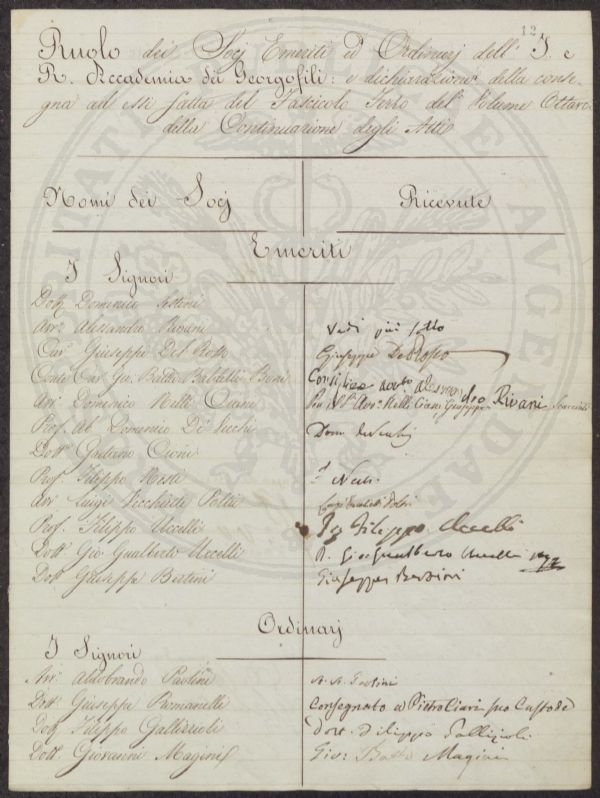 121
Ruolo dei Socj Emeriti ed Ordinarj dell' I. e
R. Accademia dei Georgofili: e dichiarazione della conse-
gna ad essi fatta del Fascicolo Terzo del Volume Ottavo
della Continuazione degli Atti
Nomi dei Socj Ricevute
Emeriti
I Signori
Dott. Domenico Sestini
Avv. Alessandro Rivani Vedi più sotto
Cav. Giuseppe Del Rosso Giuseppe Del Rosso
Conte Cav. Gio. Batta Baldelli Boni Consigliere Alessandro Rivani
Avv. Domenico Nelli Ciani Per il Sig. Avv. Nelli Ciani Giuseppe
Prof. Ab. Domenico De Vecchi Dom. de Vecchi
Dott. Gaetano Cioni
Prof. Filippo Nesti Nesti
Avv. Luigi Vecchietti Poltri
Prof. Filippo Uccelli Filippo Uccelli
Dott. Gio. Gualberto Uccelli Gio. Gualberto Uccelli
Dott. Giuseppe Bertini Giuseppe Bertini
Ordinarj
I Signori
Avv. Aldobrando Paolini A. Paolini
Dott. Giuseppe Romanelli Consegnato a Pietro Ciari suo Custode
Dott. Filippo Gallizioli Dott. Filippo Gallizioli
Dott. Giovanni Magini Gio: Batta Magini